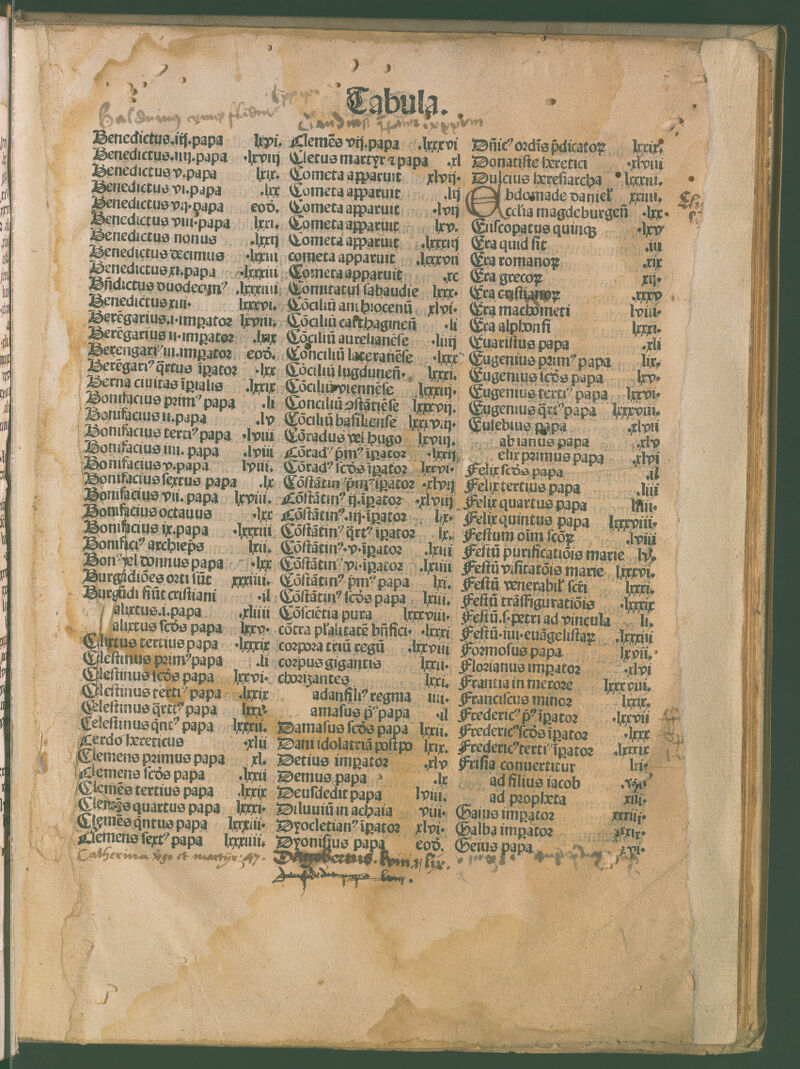 Tabula.
Benedictus.iij.papa lxvi.
Benedictus.iiij.papa .lxviij
Benedictus.v.papa lxix.
Benedictus vi.papa .lxx
Benedictus.vij.papa eod̄.
Benedictus viii.papa lxxi.
Benedictus nonus .lxxij
Benedictus decimus .lxxiii
Benedictus.xi.papa .lxxxiii
Bn̄dictus duodecim⁹ .lxxxiiii
Benedictus.xiii. lxxxvi.
Berēgarius.i.impator lxviii.
Berēgarius ii.impator .lxx
Berengari⁹.iii.impator eod̄.
Berēgari⁹ q̄rtus īpator .lxx
Berna ciuitas īpialis .lxxix
Bonifacius prim⁹ papa .li
Bonifacius ii.papa .lv
Bonifacius terti⁹ papa .lviii
Bonifacius iiii. papa .lviii
Bonifacius v.papa lviii.
Bonifacius sextus papa .lx
Bonifacius vii. papa lxviii.
Bonifacius octauus .lxx
Bonifacius ix.papa .lxxxiii
Bonifici⁹ archiep̄s lxii.
Bon⁹ vel donnus papa .lxx
Burgūdiōes orti sūt xxxiiii.
Burgūdi fiūt cristiani .il
alixtus.i.papa .xliiii
alixtus scd̄s papa lxxv.
Calixtus tertius papa .lxxxix
Celestinus prim⁹ papa .li
Celestinus scd̄s papa lxxvi.
Celestinus terti⁹ papa .lxxix
Celestinus q̄rt⁹ papa lxxx.
Celestinus qn̄t⁹ papa lxxxii.
Cerdo hereticus .xlii
Clemens primus papa xl.
Clemens scd̄s papa .lxxii
Clemēs tertius papa .lxxix
Clemēs quartus papa lxxxi.
Clemēs qn̄tus papa lxxxiii.
Clemens sext⁹ papa lxxxiiii.
Catherina v̄go et martyr 47.
Clemēs vij.papa .lxxxvi
Cletus martyr ⁊ papa .xl
Cometa apparuit xlvij.
Cometa apparuit .lij
Cometa apparuit .lvij
Cometa apparuit lxv.
Cometa apparuit .lxxxiij
cometa apparuit .lxxxvii
Cometa apparuit .xc
Comitatus sabaudie lxxx.
Cōciliū anthiocenū xlvi.
Cōciliū carthaginen̄ .li
Cōciliū aurelianēse .liiij
Conciliū lateranēse .lxxx
Cōciliū lugdunen̄. lxxxi.
Cōciliū viennēse lxxxiij.
Conciliū ꝯstātiēse lxxxvij.
Cōciliū basiliense lxxxviij.
Cōradus vel hugo lxviij.
Cōrad⁹ p̄m⁹ īpator .lxxij
Cōrad⁹ scd̄s īpator lxxvi.
Cōstātin⁹ p̄m⁹ īpator .xlvij
Cōstātin⁹ ij.īpator .xlviij
Cōstātin⁹.iij.īpator lx.
Cōstātin⁹ q̄rt⁹ īpator lx.
Cōstātin⁹.v.īpator .lxiii
Cōstātin⁹ vi.īpator .lxiiii
Cōstātin⁹ p̄m⁹ papa lxi.
Cōstātin⁹ scd̄s papa lxiii.
Cōsciētia pura lxxxviii.
cōtra pl̄alitatē bn̄fici. .lxxxi
corpora triū regū .lxxviii
corpus gigantis lxxii.
chorizantes lxxi.
adanfili⁹ regma iiii.
amasus p̄⁹ papa .il
Damasus scd̄s papa lxxii.
Dani idolatriā postpo lxix.
Detius impator .xlv
Demus papa .lx
Deusdedit papa lviii.
Diluuiū in achaia viii.
Dyocletian⁹ īpator xlvi.
Dyonisius papa eod̄.
Dn̄ic⁹ ordīs p̄dicatoꝝ lxxix.
Donatiste heretici .xlviii
Dulcius heresiarcha lxxxiii.
Ebdomade daniel' xxiiii.
cclīa magdeburgen̄ .lxx.
Eiiscopatus quinqꝫ .lxv
Era quid sit .iii
Era romanoꝝ .xix
Era grecoꝝ xij.
Era cristianoꝝ .xxxv
Era machometi lviii.
Era alphonsi lxxxi.
Euaristus papa .xli
Eugenius prim⁹ papa lix.
Eugenius scd̄s papa lxv.
Eugenius terti⁹ papa lxxvi.
Eugenius q̄rt⁹ papa lxxxviii.
Eusebius papa .xlvii
abianus papa .xlv
elix primus papa .xlvi
Felix scd̄s papa .il
Felix tertius papa .liii
Felix quartus papa
Felix quintus papa lxxxviii.
Festum oīm scōꝝ .lviii
Festū purificatiōis marie
Festū visitatōis marie lxxxvi.
Festū venerabil' scti lxxxi.
Festū trāsfiguratiōis .lxxxix
Festū.s.petri ad vincula li.
Festū.iiii.euāgelistaꝝ .lxxxiii
Formosus papa lxvii.
Florianus impator .xlvi
Frantia in merore lxxxviii.
Franciscus minor lxxix.
Frederic⁹ p̄⁹ īpator .lxxvii
Frederic⁹ scd̄s īpator .lxxx
Frederic⁹ terti⁹ īpator .lxxxix
Frisia conuertitur lxi.
ad filius iacob
ad propheta xiij.
Gaius impator xxxiij.
Galba impator xxxix.
Geius papa xvi.